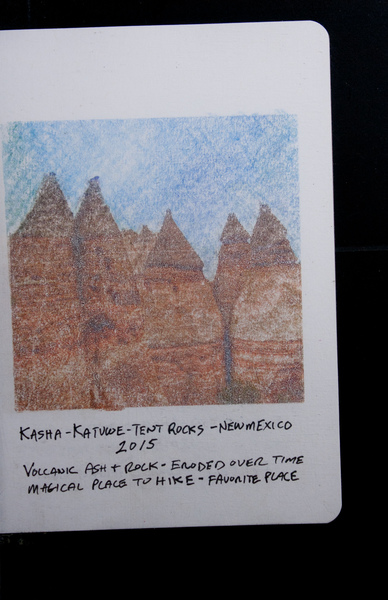 KASHA-KATUWE-TENT ROCKS-NEW MEXICO
2015
VOLCANIC ASH + ROCK - ERODED OVER TIME
MAGICAL PLACE TO HIKE - FAVORITE PLACE